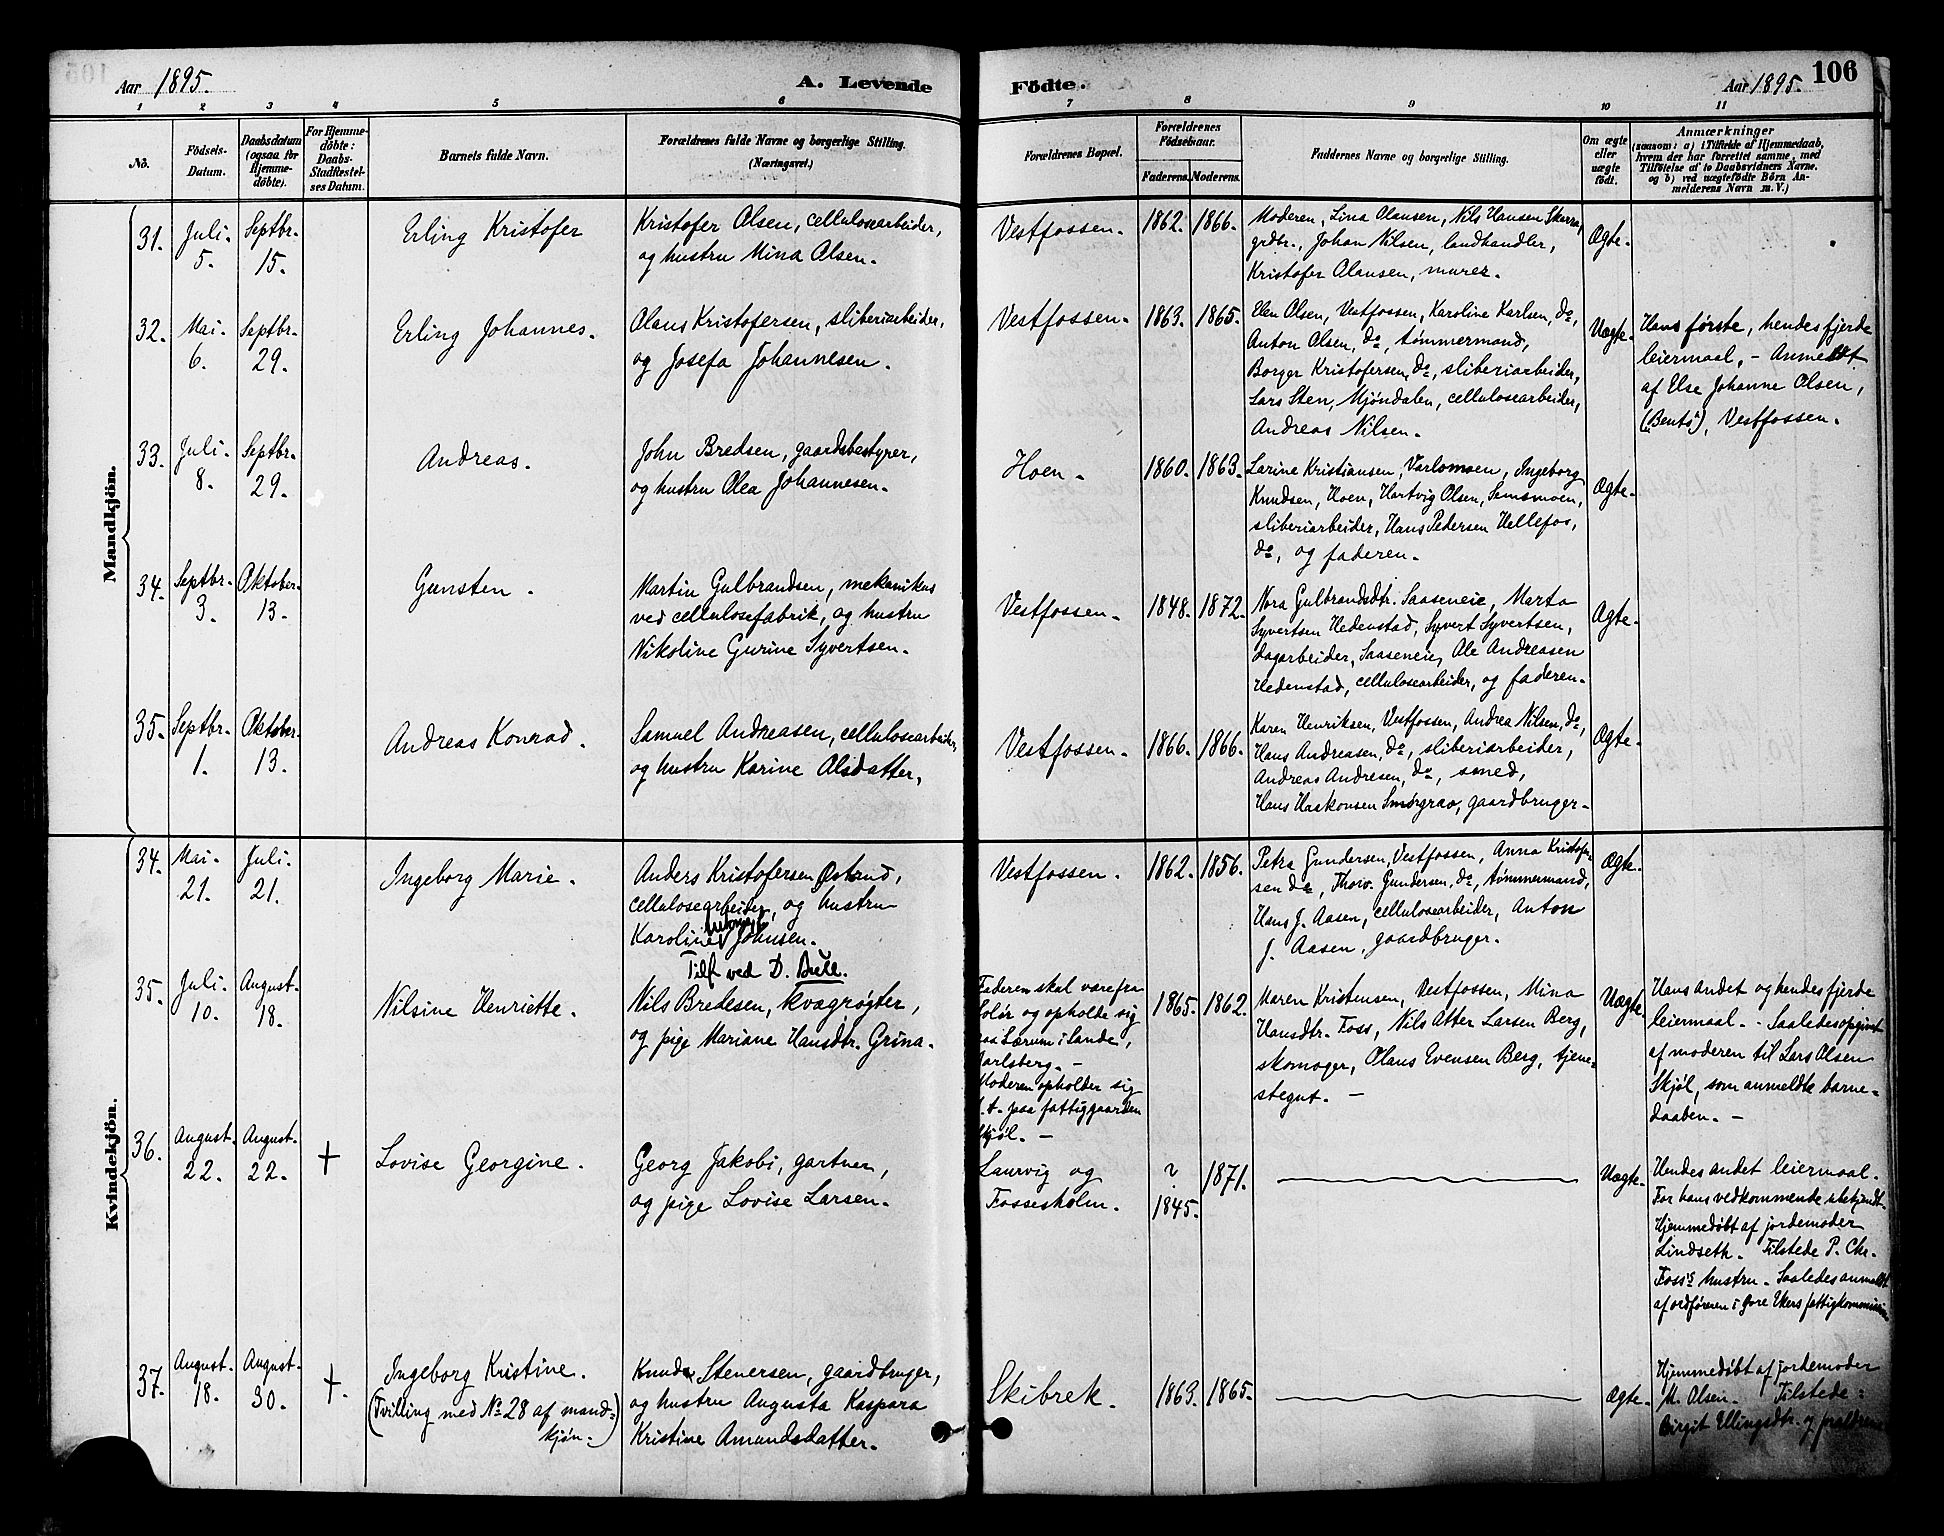 Aar 1895.
A. Levende
Födte.
Aar 1895.
106
1 2 3 4 5 6 7 8 9 10 11
No.
Födsels-
Datum.
Daabsdatum
(ogsaa for
Hjemme-
döbte).
For Hjemme-
døbte:
Daabs-
Stadfæstel-
ses Datum.
Barnets fulde Navn.
Forældrenes fulde Navne og borgerlige Stilling.
(Næringsvei.)
Forældrenes Bopæl.
Forældrenes
Födselsaar.
Faderens. Moderens.
Faddernes Navne og borgerlige Stilling.
Om ægte
eller
uægte
født.
Anmærkninger
(saasom: a) i Tilfælde af Hjemmedaab,
hvem der har forrettet samme, med
Tilföielse af to Daabsvidners Navne.
og b) ved uægtefödte Börn An-
melderens Navn m. V.)
Mandkjön.
31.
Juli.
5.
Septbr.
15.
Erling Kristofer
Kristofer Olsen, cellulosearbeider,
og hustru Mina Olsen.
Vestfossen.
1862. 1866.
Moderen, Lina Olausen, Nils Hansen Skurra,
grdbr., Johan Nilsen, landhandler,
Kristofer Olausen, murer.
Ægte.
32.
Mai.
6.
Septbr.
29.
Erling Johannes.
Olaus Kristofersen, sliberiarbeider,
og Josefa Johannesen.
Vestfossen.
1863. 1865.
Olsen, Vestfossen, Karoline Karlsen, do,
Anton Olsen, do, tømmermand,
Borger Kristofersen, do, sliberiarbeider,
Lars Sten, Mjøndalen, cellulosearbeider,
Andreas Nilsen.
Uægte.
Hans første, hendes fjerde
leiermaal. - Anmeldt
af Else Johanne Olsen,
("Bents"), Vestfossen.
33.
Juli.
8.
Septbr.
29.
Andreas.
John Bredsen, gaardsbestyrer,
og hustru Olea Johannesen.
Hoen.
1860. 1863.
Larine Kristiansen, Varlomoen, Ingeborg
Knudsen, Hoen, Hartvig Olsen, Semsmoen,
sliberiarbeider, Hans Pedersen Hellefos,
do, og faderen.
Ægte.
34.
Septbr.
3.
Oktober.
13.
Gunsten.
Martin Gulbrandsen, mekanikus
ved cellulosefabrik, og hustru
Nikoline Gurine Syvertsen.
Vestfossen.
1848. 1872.
Nora Gulbrandsdtr. Saaseneie, Marta
Syvertsen Hedenstad, Syvert Syvertsen,
dagarbeider, Saaseneie, Ole Andreasen
Hedenstad, cellulosearbeider, og faderen.
Ægte.
35.
Septbr.
1.
Oktober.
13.
Andreas Konrad.
Samuel Andreasen, cellulosearbeider,
og hustru Karine Olsdatter,
Vestfossen.
1866. 1866.
Karen Henriksen, Vestfossen, Andrea Nilsen, do,
Hans Andreasen, do, sliberiarbeider,
Andreas Andresen, do, smed,
Hans Haakonsen Smørgrav, gaardbruger.
Ægte.
Kvindekjön.
34.
Mai.
21.
Juli.
21.
Ingeborg Marie.
Anders Kristofersen Østrud,
cellulosearbeider, og hustru
Karoline Johnsen.
Tilf ved D. Bull.
Vestfossen.
1862. 1856.
Petra Gundersen, Vestfossen, Anna Kristofer-
sen do, Thorv. Gundersen, do, tømmermand,
Hans J. Aasen, cellulosearbeider, Anton
J. Aasen, gaardbruger.
Ægte.
35.
Juli.
10.
August.
18.
Nilsine Henriette.
Nils Bredesen, kvægrøgter,
og pige Mariane Hansdtr. Grina.
Faderen skal være fra
Solør og opholde sig
paa Lærum i Sande,
Jarlsberg. -
Moderen opholder sig
f. t. paa fattiggaarden
Skjøl. -
1865. 1862.
Maren Kristensen, Vestfossen, Mina
Hansdtr. Foss, Nils Atter Larsen Berg,
skomager, Olaus Evensen Berg, tjene-
stegut. -
Uægte.
Hans andet og hendes fjerde
leiermaal. - Saaledes opgivet
af moderen til Lars Olsen
Skjøl, som anmeldte barne-
daaben. -
36.
August.
22.
August.
22.
+
Lovise Georgine.
Georg Jakobi, gartner,
og pige Lovise Larsen.
Laurvig og
Fossesholm.
?
1845.
1871.
Uægte.
Hendes andet leiermaal.
For hans vedkommende ubekjendt.
Hjemmedøbt af jordemoder
Lindseth. Tilstede P. Chr.
Foss's hustru. Saaledes anmeldt
af ordføreren i Øvre Ekers fattigkommission
37.
August.
18.
August.
30.
+.
Ingeborg Kristine.
(Tvilling med No 28 af mand-
kjøn.)
Knud Stenersen, gaardbruger,
og hustru Augusta Kaspara
Kristine Amundsdatter.
Skibrek.
1863. 1865.
Ægte.
Hjemmedøbt af jordemoder
M. Olsen. Tilstede:
Birgit Ellingsdtr. og